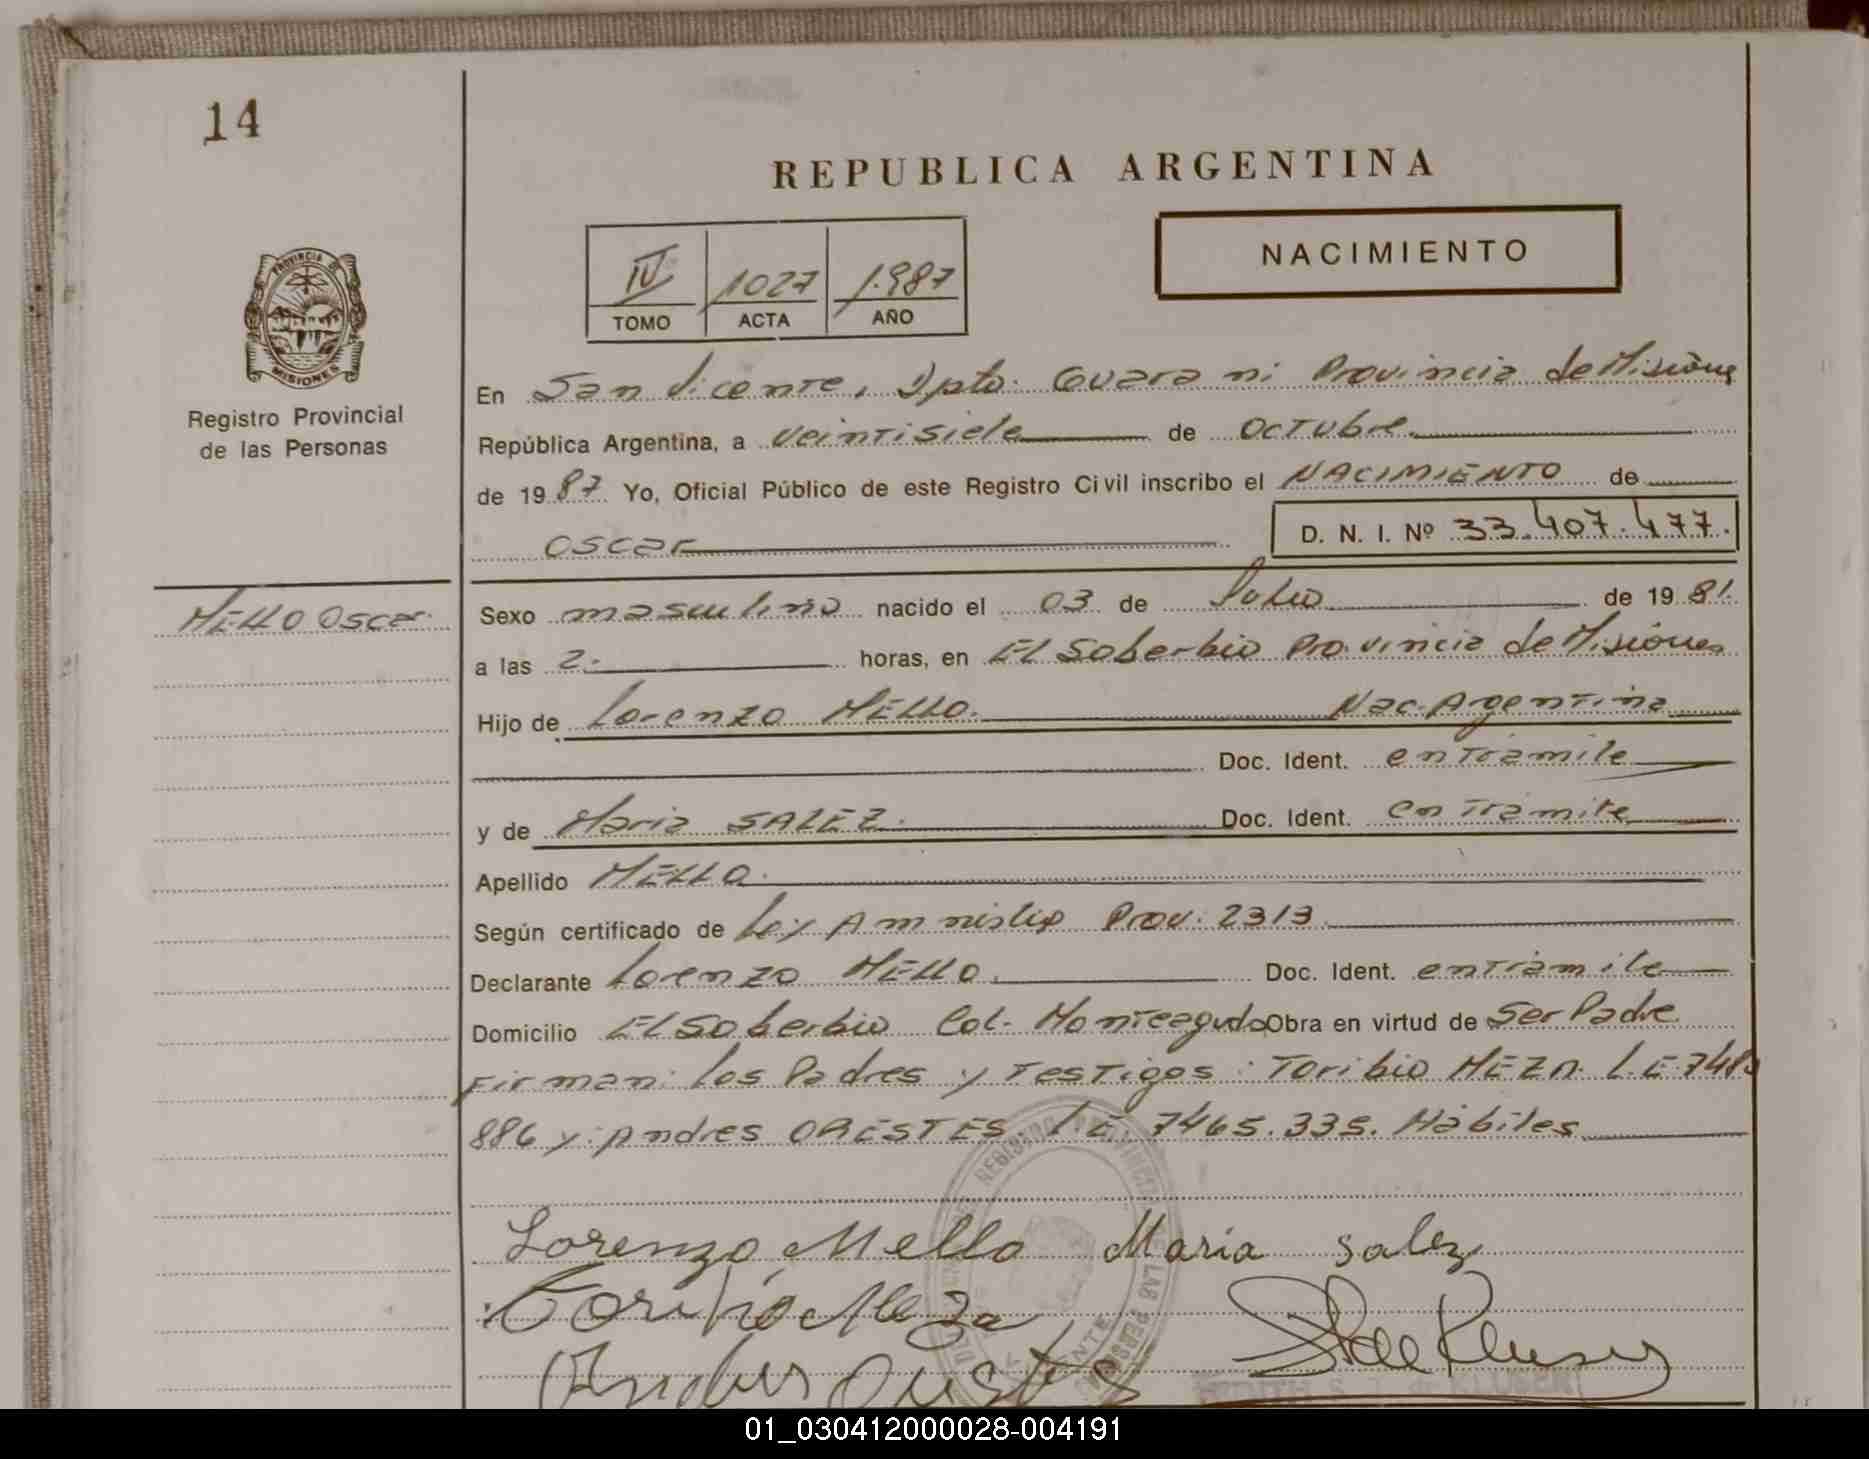 14
REPUBLICA ARGENTINA
NACIMIENTO
IV 1027 1.987
TOMO ACTA AÑO
PROVINCIA DE
MISIONES
Registro Provincial
de las Personas
En San Vicente, Dpto. Guarani Provincia de Misiones
República Argentina, a veintisiete de Octubre
de 19 87 Yo, Oficial Público de este Registro Civil inscribo el NACIMIENTO de
Oscar D. N. I. Nº 33.407.477.
MELLO Oscar.
Sexo masculino nacido el 03 de Julio de 19 81.
a las 2. horas, en El Soberbio Provincia de Misiones
Hijo de Lorenzo MELLO. Nac. Argentina
Doc. Ident. en tramite
y de Maria SALEZ. Doc. Ident. en tramite
Apellido MELLO.
Según certificado de Ley Amnistia Prov. 2313
Declarante Lorenzo MELLO. Doc. Ident. en tramite
Domicilio El Soberbio Col. Monteagudo Obra en virtud de Ser Padre
Firman: los Padres y Testigos: Toribio MEZA. L.E. 748
886 y Andres ORESTES L E 7465.335. Hábiles
Lorenzo Mello Maria Salez
Toribio Meza
01_030412000028-004191